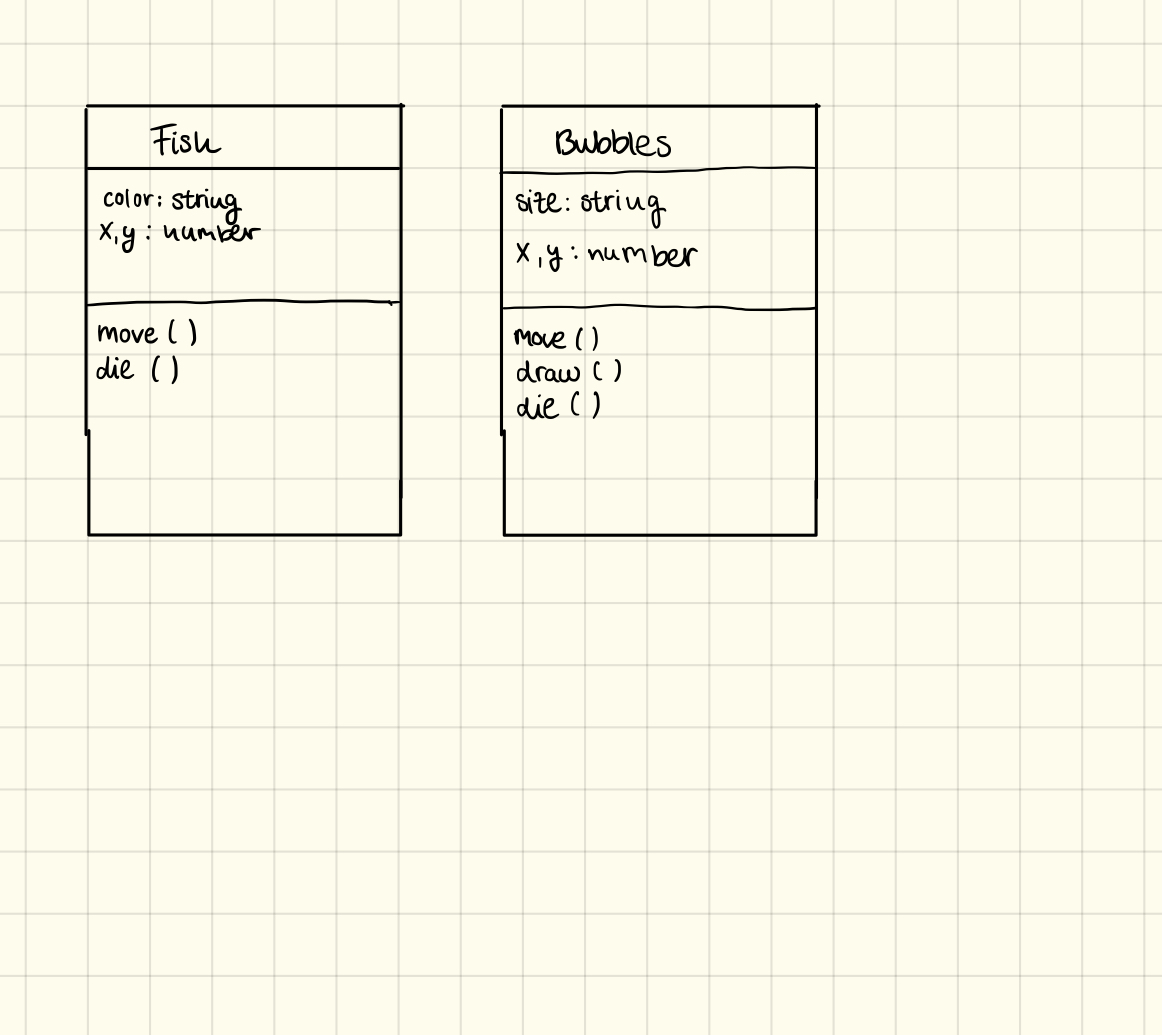 Fish
color: string
x,y: number
move ( )
die ( )
Bubbles
size: string
x,y: number
move ( )
draw ( )
die ( )